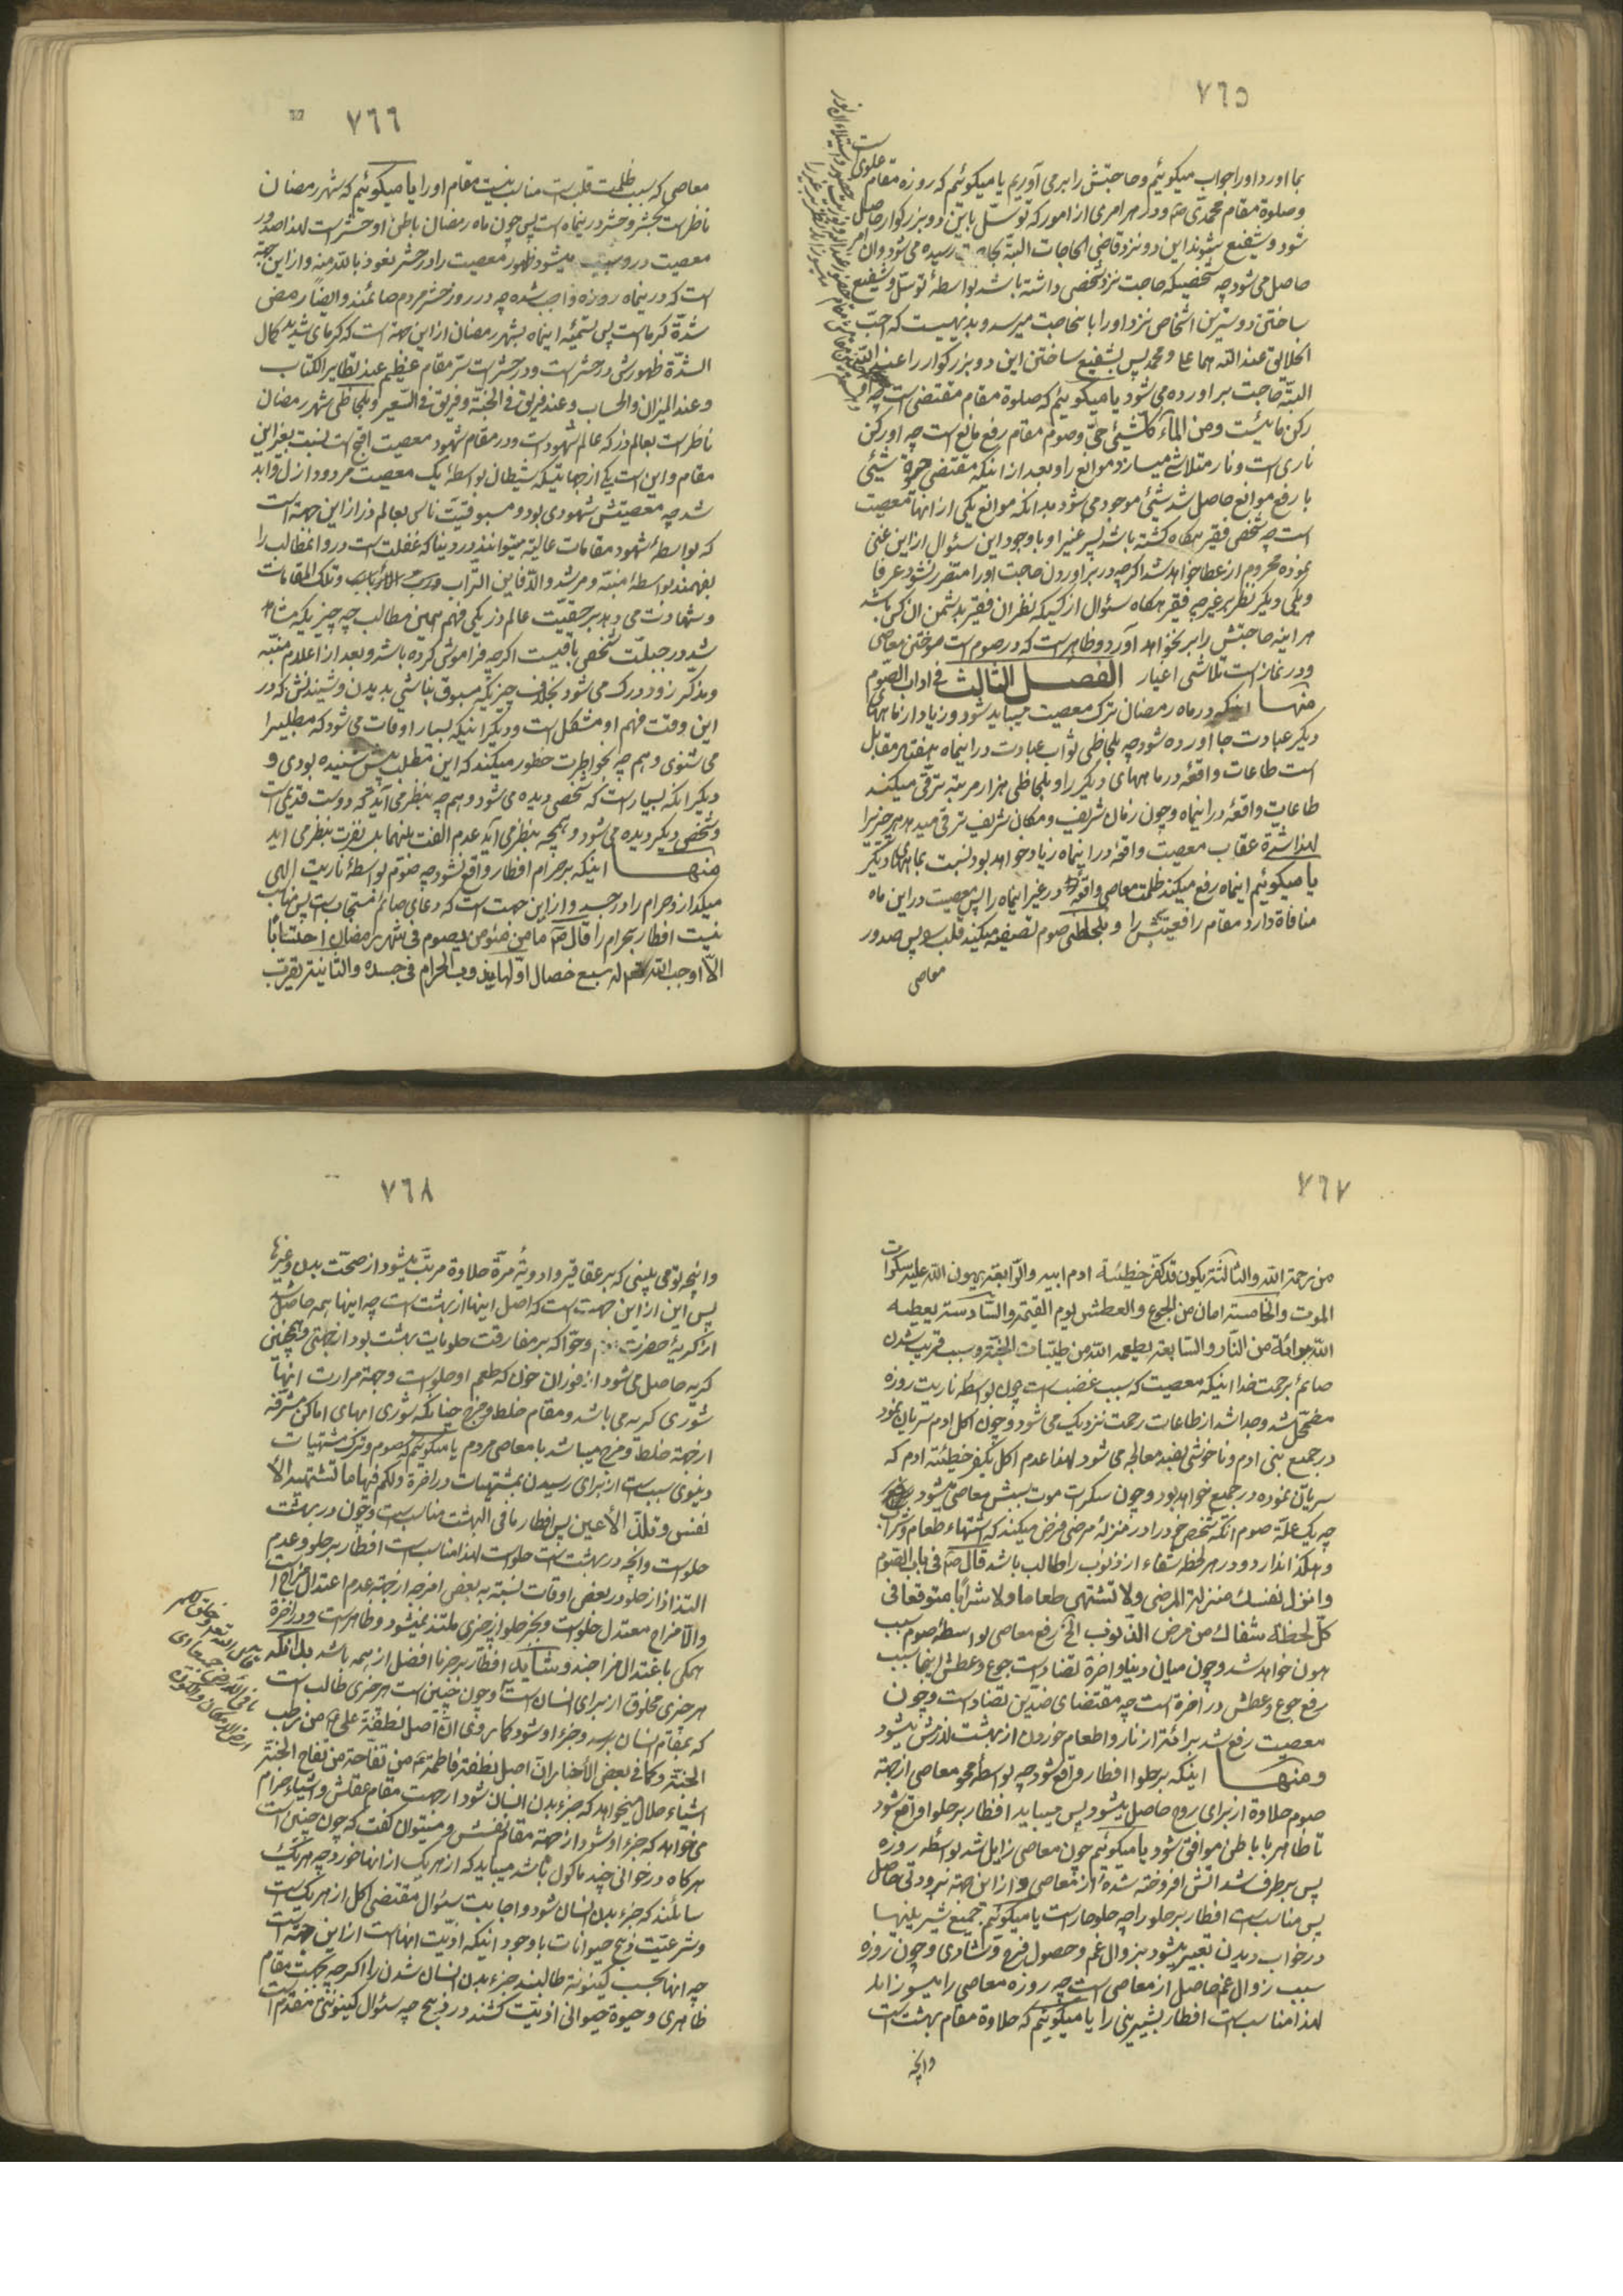 ٧٦٥
بما اورد اورا جواب میکوئیم و حاجتش را برمی آوریم یا میکوئیم که روزه مقام علوی است
وصلوة مقام محمدی ص و در هر امری از امور که توسّل باین دو بزرکوار حاصل
شود و شفیع شوند این دو نزد قاضی الحاجات البتّه بحاجت رسیده می شود وآن امر
حاصل می شود چه شخصیکه حاجت نزد شخصی داشته باشد بواسطهٔ توسّل و شفیع
ساختن دوسترین اشخاص نزد او را بانحاجت میرسد و بدیهیست که احبّ
الخلائق عند الله هما علی و محمد پس بشفیع ساختن این دو بزرکوار را عند الله
البتّه حاجت براورده می شود یا میکوئیم که صلوة مقام مقتضی است چه او
رکن مائیست ومن الماء کلشیئی حیّ وصوم مقام رفع مانع است چه او رکن
ناری است و نار متلاشی میسازد موانع را و بعد از اینکه مقتضی حیوة شیئی
با رفع موانع حاصل شد شیئی موجود می شود بدانکه موانع یکی از انها معصیت
است چه شخصی فقیر هرکاه کشته باشد پسر غنیرا و با وجود این سئوال از این غنی
نموده محروم از عطا خواهد شد اکرچه در براوردن حاجت اورا متضرر نشود عرفا
ویکی دیکر نظر بر غیر چه فقیر هرکاه سئوال از کسیکه نظر ان فقیر بدشمن ان کس باشد
هراینه حاجتش را برنخواهد آورد وظاهر است که در صوم است سوختن معاصی
ودر نماز است تلاشی اغیار الفصل الثالث فی اداب الصّوم
منها اینکه در ماه رمضان ترک معصیت میباید شود وزیاد از ماههای
دیکر عبادت جا آورده شود چه بلحاظی ثواب عبادت در اینماه هفتاد مقابل
است طاعات واقعهٔ در ماههای دیکر را و بلحاظی هزار مرتبه ترقی میکند
طاعات واقعهٔ در اینماه وچون زمان شریف و مکان شریف ترقی میدهد هر چیز را
لهذا شدّة عقاب معصیت واقعهٔ در اینماه زیاد خواهد بود نسبت بماههای دیکر
یا میکوئیم اینماه رفع میکند ظلمت معاصی واقعهٔ در غیر اینماه را پس معصیت در این ماه
منافاة دارد مقام رافعیتش را و بلحاظی صوم تصفیه میکند قلب را پس صدور
معاصی
٧٦٦
معاصی که سبب ظلمت قلب است مناسب نیست مقام اورا یا میکوئیم که شهر رمضان
ناظر است بحشر وحشر در اینماه است پس چون ماه رمضان باطن او حشر است لهذا صدور
معصیت در و سبب میشود ظهور معصیت را در حشر نعوذ بالله منه واز این جهة
است که در اینماه روزه واجب شده چه در روز حشر مردم صائمند وایضا رمض
شدّة کرماست پس تسمیّه اینماه بشهر رمضان از این جهة است که کرمای شدید کمال
الشدّة ظهورش در حشر است ودر حشر است ستر مقام عظیم عند تطایر الکتاب
وعند المیزان والحساب وعند فریق فی الجنّة وفریق فی السّعیر وبلحاظی شهر رمضان
ناظر است بعالم ذر که عالم شهود است ودر مقام شهود معصیت اقبح است نسبت بغیر این
مقام واین است یکی از جهاتیکه شیطان بواسطهٔ یک معصیت مردود ازل وابد
شد چه معصیتش شهودی بود ومسبوقیّت ناس بعالم ذر از این جهة است
که بواسطهٔ شهود مقامات عالیه میتوانند در دنیا که غفلت است در و انمطالب را
بفهمند بواسطهٔ منبّه ومرشد والّا فاین التّراب ورب الارباب وتلک المقامات
وشهادت می دهد بر حقیّت عالم ذر یکی فهم همین مطالب چه چیزیکه مشاهد
شد در جبلّت شخص باقیست اکرچه فراموش کرده باشد وبعد از اعلام منبّه
ومذکّر زود درک می شود بخلاف چیزیکه مسبوق نباشی بدیدن وشنیدنش که در
این وقت فهم او مشکل است ودیکر اینکه بسیار اوقات می شود که مطلبیرا
می شنوی وهم چه بخواطرت خطور میکند که این مطلب پیش شنیده بودی و
دیکر انکه بسیار است که شخصی دیده می شود وهم چه بنظر می آید که دوست قدیمی است
وشخصی دیکر دیده می شود وهمچه بنظر می آید عدم الفت بینهما بل نفرت بنظر می اید
منها اینکه بر حرام افطار واقع نشود چه صوم بواسطهٔ ناریت الهی
میکدازد حرام را در جسد واز این جهت است که دعای صائم مستجاب است پس مناسب
نیست افطار بحرام را قال ص ما من مؤمن یصوم فی شهر رمضان احتسابا
الّا اوجب الله تعالی له سبع خصال اوّلها یذوب الحرام فی جسده والثانیة یقرب
٧٦٧
من رحمة الله والثالثة یکون قد کفّر خطیئة ادم ابیه والرّابعة یهون الله علیه سکرات
الموت والخامسة امان من الجوع والعطش یوم القیمة والسّادسة یعطیه
الله برائة من النّار والسّابعة یطعمه الله من طیّبات الجنّة وسبب قریب شدن
صائم برحمت خدا اینکه معصیت که سبب غضب است چون بواسطهٔ ناریت روزه
مضمحّل شد وجدا شد از طاعات رحمت نزدیک می شود وچون اکل ادم سریان نمود
در جمیع بنی ادم وناخوشی بضدّ معالجه می شود لهذا عدم اکل یکفّر خطیئته ادم که
سریان نموده در جمیع خواهد بود وچون سکرات موت سببش معاصی میشود
چه یک علّة صوم انکه شخص خود را در منزلهٔ مرضی فرض میکند که اشتهاء طعام وشراب
وهکذا ندارد ودر هر لحظه شفاء از ذنوب را طالب باشد قال ص فی باب الصّوم
وانزل نفسک منزلة المرضی ولا تشتهی طعاما ولا شرابا متوقعا فی
کلّ لحظة شفائک من مرض الذّنوب الخ رفع معاصی بواسطهٔ صوم سبب
هون خواهد شد وچون میان دنیا واخرة تضاد است جوع وعطش اینجا سبب
رفع جوع وعطش در اخرة است چه مقتضای ضدّین تضاد است وچون
معصیت رفع شد برائة از نار واطعام خوردن از بهشت لازمش میشود
ومنها اینکه بر حلوا افطار واقع شود چه بواسطهٔ محو معاصی از جهة
صوم حلاوة از برای روح حاصل میشود پس میباید افطار بر حلوا واقع شود
تا ظاهر با باطن موافق شود یا میکوئیم چون معاصی زایل شد بواسطهٔ روزه
پس برطرف شد اتش افروخته شدهٔ از معاصی واز این جهة برودتی حاصل
پس مناسب است افطار بر حلو را چه حلو حار است یا میکوئیم جمیع شیرینیها
در خواب دیدن تعبیر میشود بزوال غم وحصول فرح وشادی وچون روزه
سبب زوال غم حاصل از معاصی است چه روزه معاصی را میسوزاند
لهذا مناسب است افطار بشیرینی را یا میکوئیم که حلاوة مقام بهشت است
وانچه
٧٦٨
وانچه تو می بینی که بر عقاقیر وادویهٔ مرّة حلاوة مرتّب میشود از صحّت بدن وغیرها
پس این از این جهة است که اصل اینها از بهشت است چه اینها همه حاصل شد
از کریهٔ حضرت ادم وحوّا که بر مفارقت حلویات بهشت بود از جهتی وهمچنین
کریه حاصل می شود از فوران خون که طعم او حلو است وجهة مرارت انها
شوری کریه می باشد ومقام خلط ومزج چنانکه شوری ابهای اماکن مشرفه
از جهة خلط ومزج میباشد با معاصی مردم یا میکوئیم که صوم وترک مشتهیات
دنیوی سبب است از برای رسیدن بمشتهیات در اخرة ولکم فیها ما تشتهیه الأ
نفس وتلذّ الأعین پس افطار بما فی البهشت مناسب است وچون در بهشت
حلو است وانچه در بهشت است حلو است لهذا مناسب است افطار بر حلو وعدم
التذاذ از حلو در بعض اوقات نسبة به بعض امزجه از جهة عدم اعتدال مزاج است
والّا مزاج معتدل حلو است وبجز حلو از چیزی ملتذ نمیشود وظاهر است ودر اخرة
همکی باعتدال مزاجند وشاید افطار بر خرما افضل از همه باشد بدانکه
هر چیزی مخلوق از برای انسان است وچون چنین است هر چیزی طالب است
که بمقام انسان برسد وجزء او شود کما روی انّ اصل نطفة علی ع من رطب
الجنّة وکما فی بعض الأخبار ان اصل نطفة فاطمة ع من تفّاحة من تفاح الجنّة
اشیاء حلال میخواهد که جزء بدن انسان شود از جهت مقام عقلش واشیاء حرام
می خواهد که جزء او شود از جهة مقام نفسش ومیتوان کفت که چون چنین است
هرکاه در خوانی چند ماکول باشد میباید که از هر یک از انها خورد چه هر یک
سائلند که جزء بدن انسان شود واجابت سئوال مقتضی اکل از هر یک است
وشرعیّت ذبح حیوانات با وجود انیکه اذیّت انهاست از این جهة است
چه انها بحسب کینونة طالبند جزء بدن انسان شدن را اکرچه بحسب مقام
ظاهری وحیوة حیوانی اذیّت کشند در ذبح چه سئوال کینونتی مقدّم است